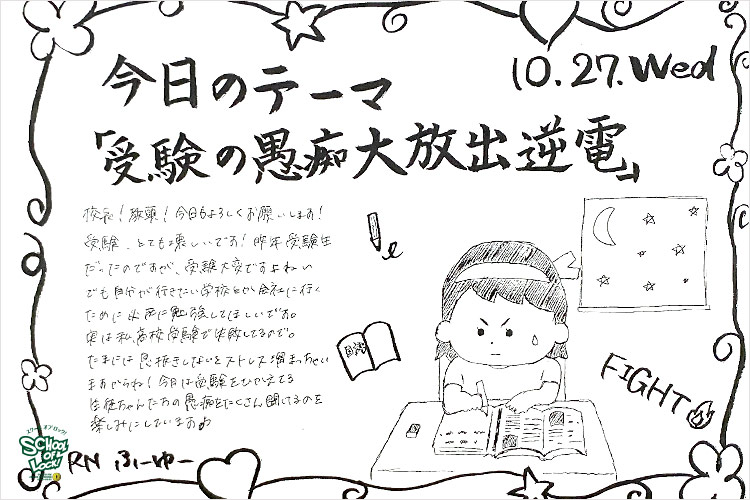 10.27.Wed
今日のテーマ
「受験の愚痴大放出逆電」
校長！教頭！今日もよろしくお願いします！
受験、とても悲しいです！昨年受験生
だったのですが、受験大変ですよねい
でも自分が行きたい学校とか会社に行く
ために必死に勉強してほしいです。
実は私、高校受験で失敗してるので。
たまには息抜きしないとストレス溜まっちゃい
ますからね！今日は受験をひかえてる
生徒ちゃんたちの愚痴をたくさん聞けるのを
楽しみにしていますわ
国語
FIGHT
スクール オブ ロック!
SCHOOL
OF
LOCK!
RN ふーゆー